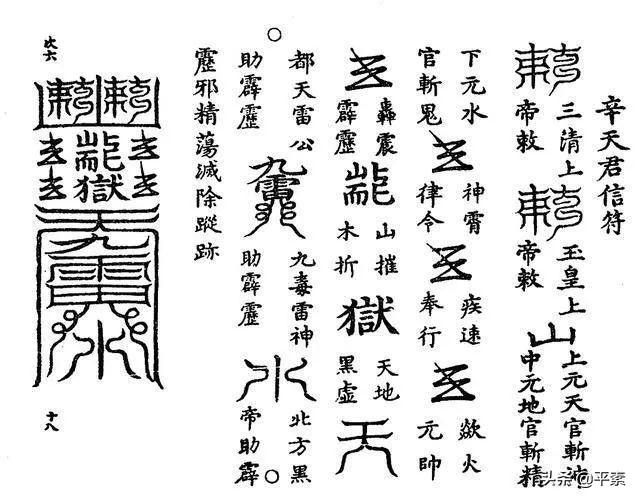 辛天君信符
三清上
帝敕
玉皇上
帝敕
山
上元天官斬神
中元地官斬精
下元水
官斬鬼
神霄
律令
疾速
奉行
歘火
元帥
轟震
霹靂
山摧
木折
獄
天地
黑虛
天
都天雷公
助霹靂
九毒雷神
助霹靂
水
北方黑
帝助霹
靂邪精蕩滅除蹤跡
獄
十八
头条 @平素